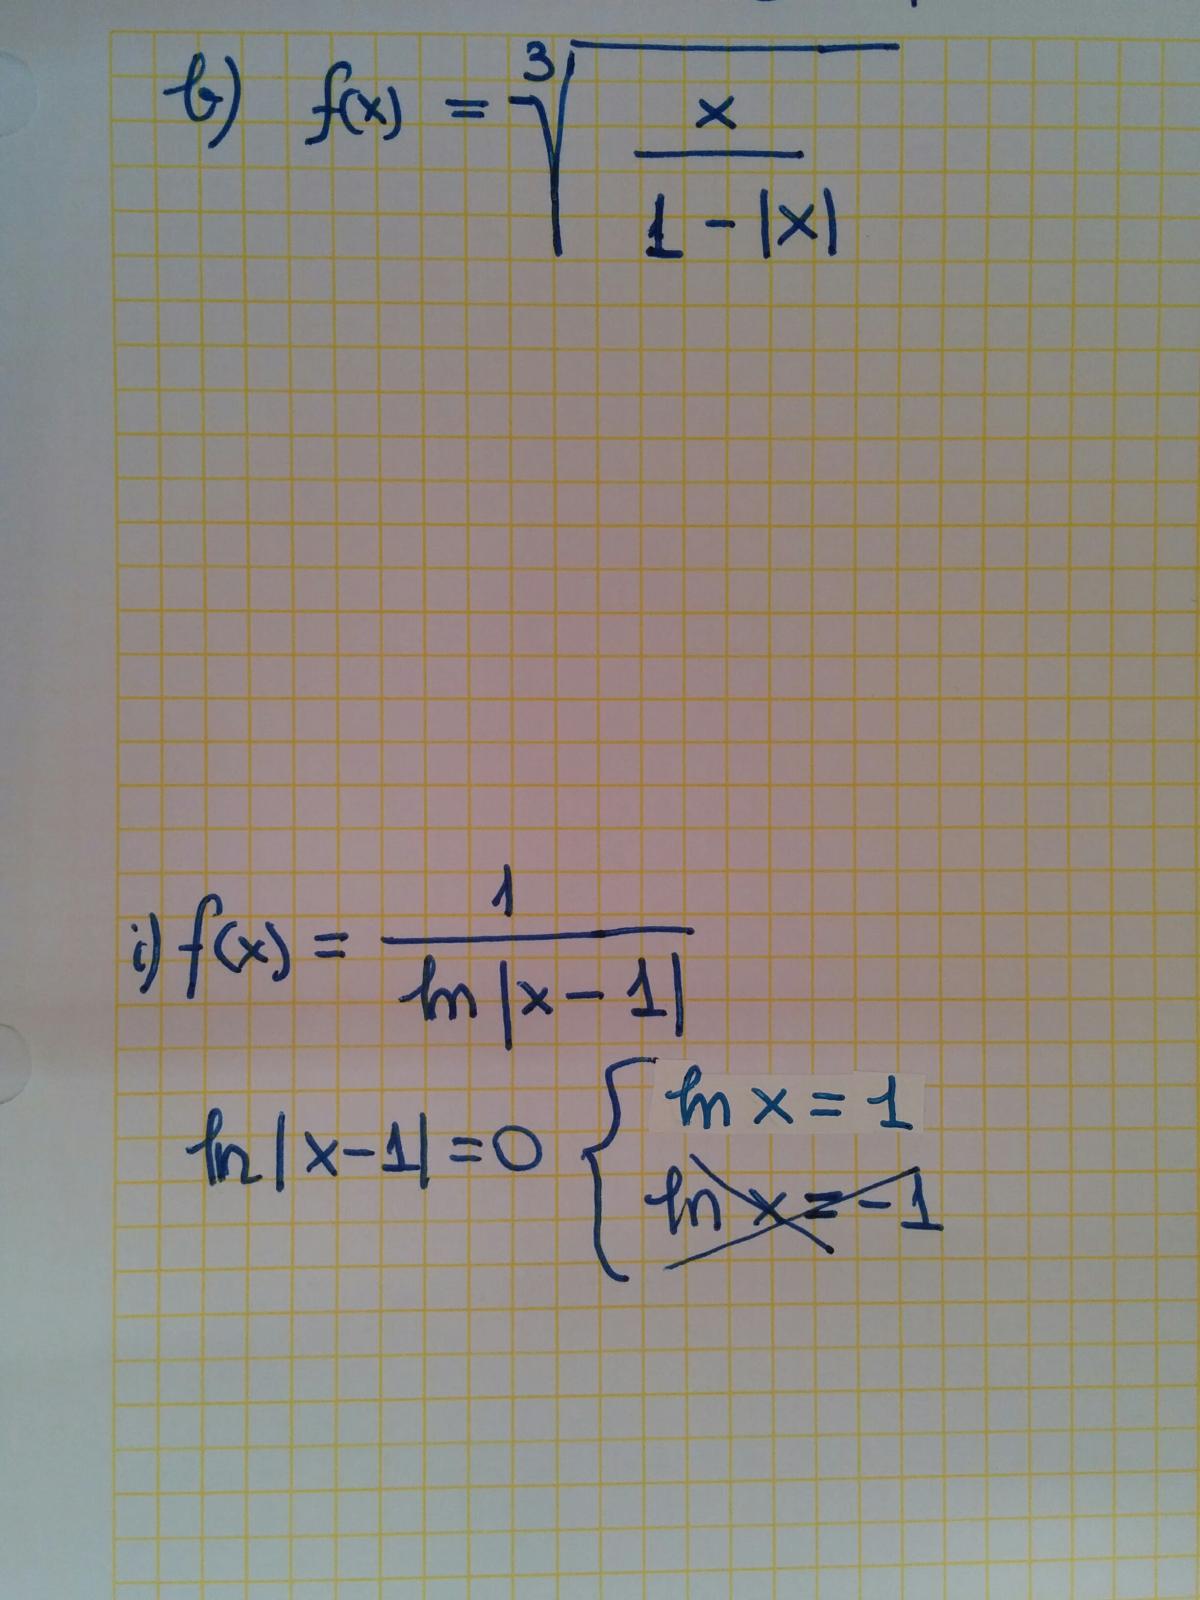 b) f(x) = ∛(x / (1 - |x|))
i) f(x) = 1 / ln|x-1|
ln|x-1| = 0 { ln x = 1
ln x = -1